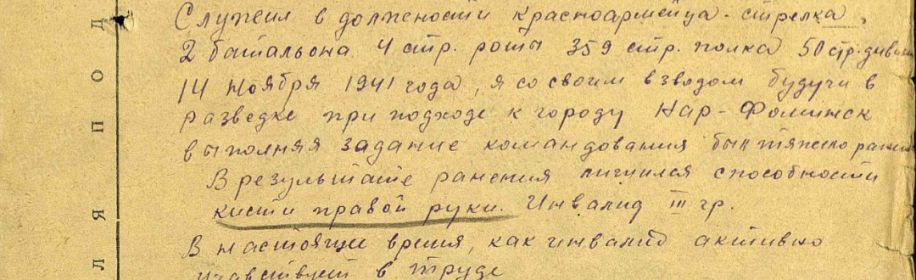 Служил в должности красноармейца-стрелка,
2 батальона 4 стр. роты 359 стр. полка 50 стр. дивизии
14 ноября 1941 года, я со своим взводом будучи в
разведке при подходе к городу Нар-Фоминск
выполняя задание командования был тяжело ранен
В результате ранения лишился способности
кисти правой руки. Инвалид III гр.
В настоящие время, как инвалид активно
учавствует в труде
Д
О
П
Я
Л